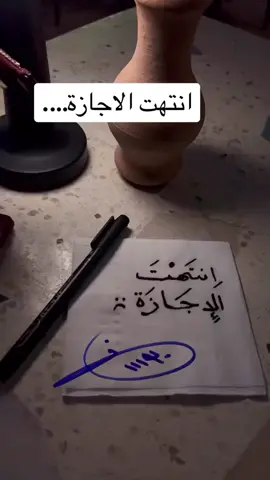 انتهت الاجازة....
اِنتَهَتْ
الإِجَازَة